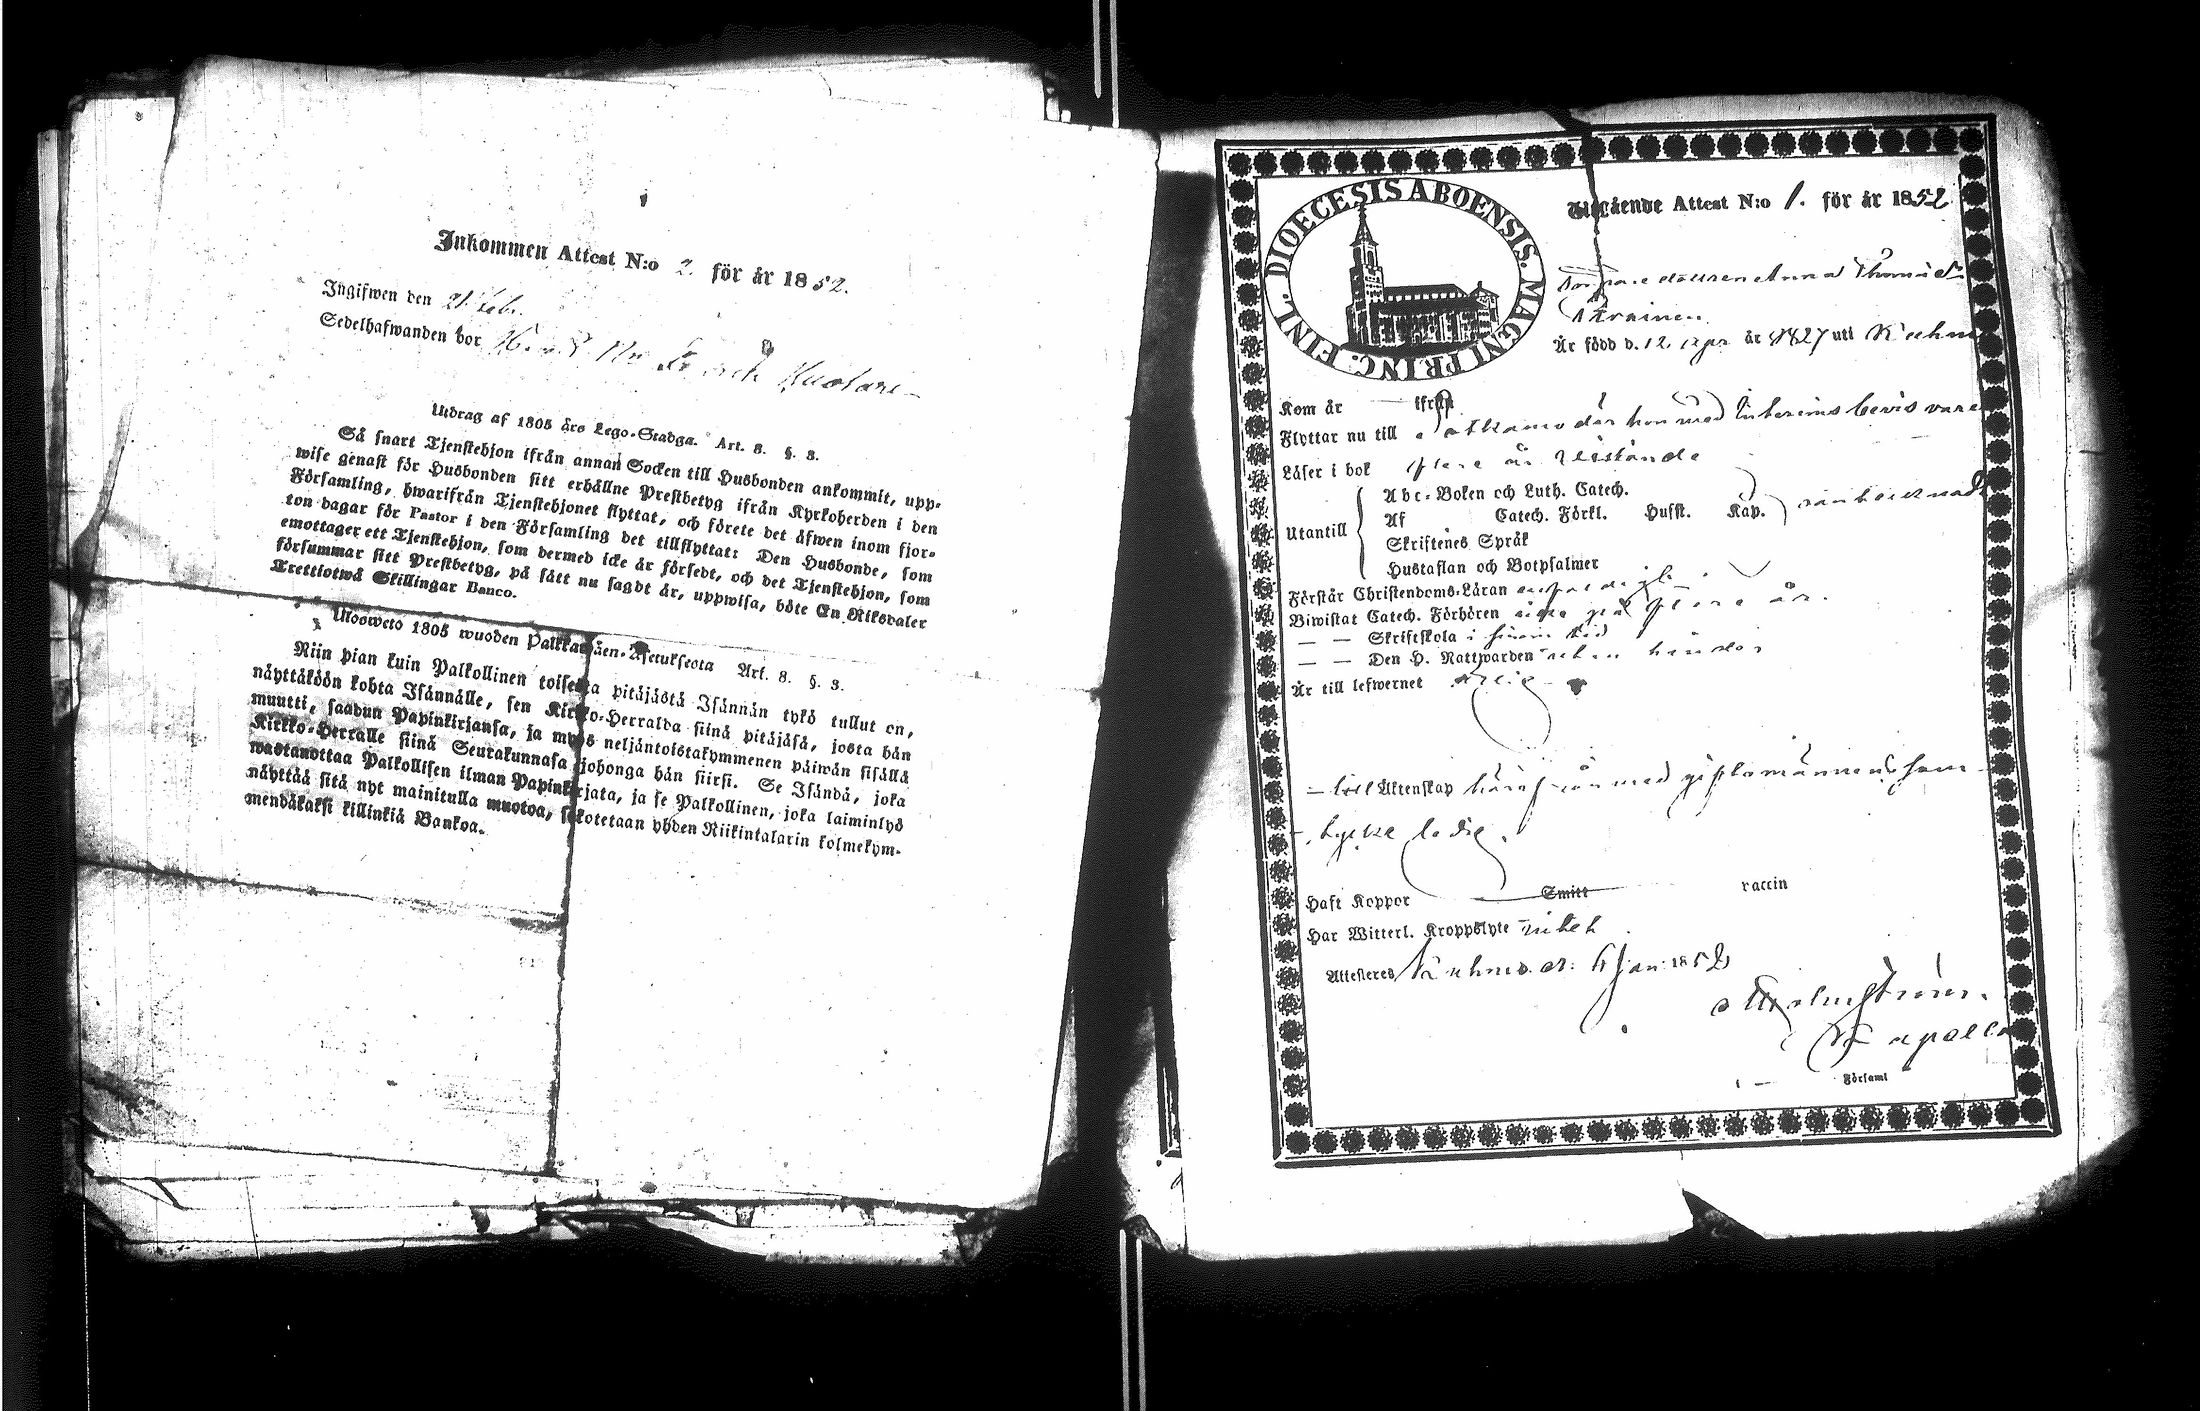 Inkommen Attest N:o 2. för år 1852.
Ingifwen den 21 Feb.
Sedelhafwanden bor
Utdrag af 1805 års Lego-Stadga. Art. 8. §. 3.
Så snart Tjenstehjon ifrån annan Socken till Husbonden ankommit, upp-
wise genast för Husbonden sitt erhållne Prestbetyg ifrån Kyrkoherden i den
Församling, hwarifrån Tjenstehjonet flyttat, och förete det äfwen inom fjor-
ton dagar för Pastor i den Församling det tillflyttat: Den Husbonde, som
emottager ett Tjenstehjon, som dermed icke är försedt, och det Tjenstehjon, som
försummar sitt Prestbetyg, på sätt nu sagdt är, uppwisa, böte En Riksdaler
Trettiotwå Skillingar Banco.
Ulosweto 1805 wuoden Palkkawäen-Asetuksesta Art. 8. §. 3.
Niin pian kuin Palkollinen toisesta pitäjästä Isännän tykö tullut on,
näyttäköön kohta Isännälle, sen Kirkko-Herralda siinä pitäjäsä, josta hän
muutti, saadun Papinkirjansa, ja myös neljäntoistakymmenen päiwän sisällä
Kirkko-Herralle siinä Seurakunnasa johonga hän siirsi. Se Isändä, joka
wastanottaa Palkollisen ilman Papinkirjata, ja se Palkollinen, joka laiminlyö
näyttää sitä nyt mainitulla muotoa, sakotetaan yhden Riikintalarin kolmekym-
mendäkaksi killinkiä Bankoa.
DIOECESIS ABOENSIS. MAGNI PRINC. FINL.
Utgående Attest N:o 1. för år 1852
dottren Anna Thomasd:r
Är född d. 12 Apr år 1827 uti Kuhmo
Kom år — ifrån
Flyttar nu till der hon med Interims bevis varit
Läser i bok flere år
Abc-Boken och Luth. Catech.
Utantill Af Catech. Förkl. Husst. Kap.
Skriftenes Språk
Hustaflan och Botpsalmer
Förstår Christendoms-Läran
Biwistat Catech. Förhören icke på flere år.
— — Skriftskola i sinom tid
— — Den H. Nattwarden
Är till lefwernet
till Äktenskap härifrån med giftomannens sam-
tycke ledig.
Haft Koppor Smitt vaccin
Har Witterl. Kroppslyte intet
Attesteras Kuhmo d. 4 Jan: 1852
Församl